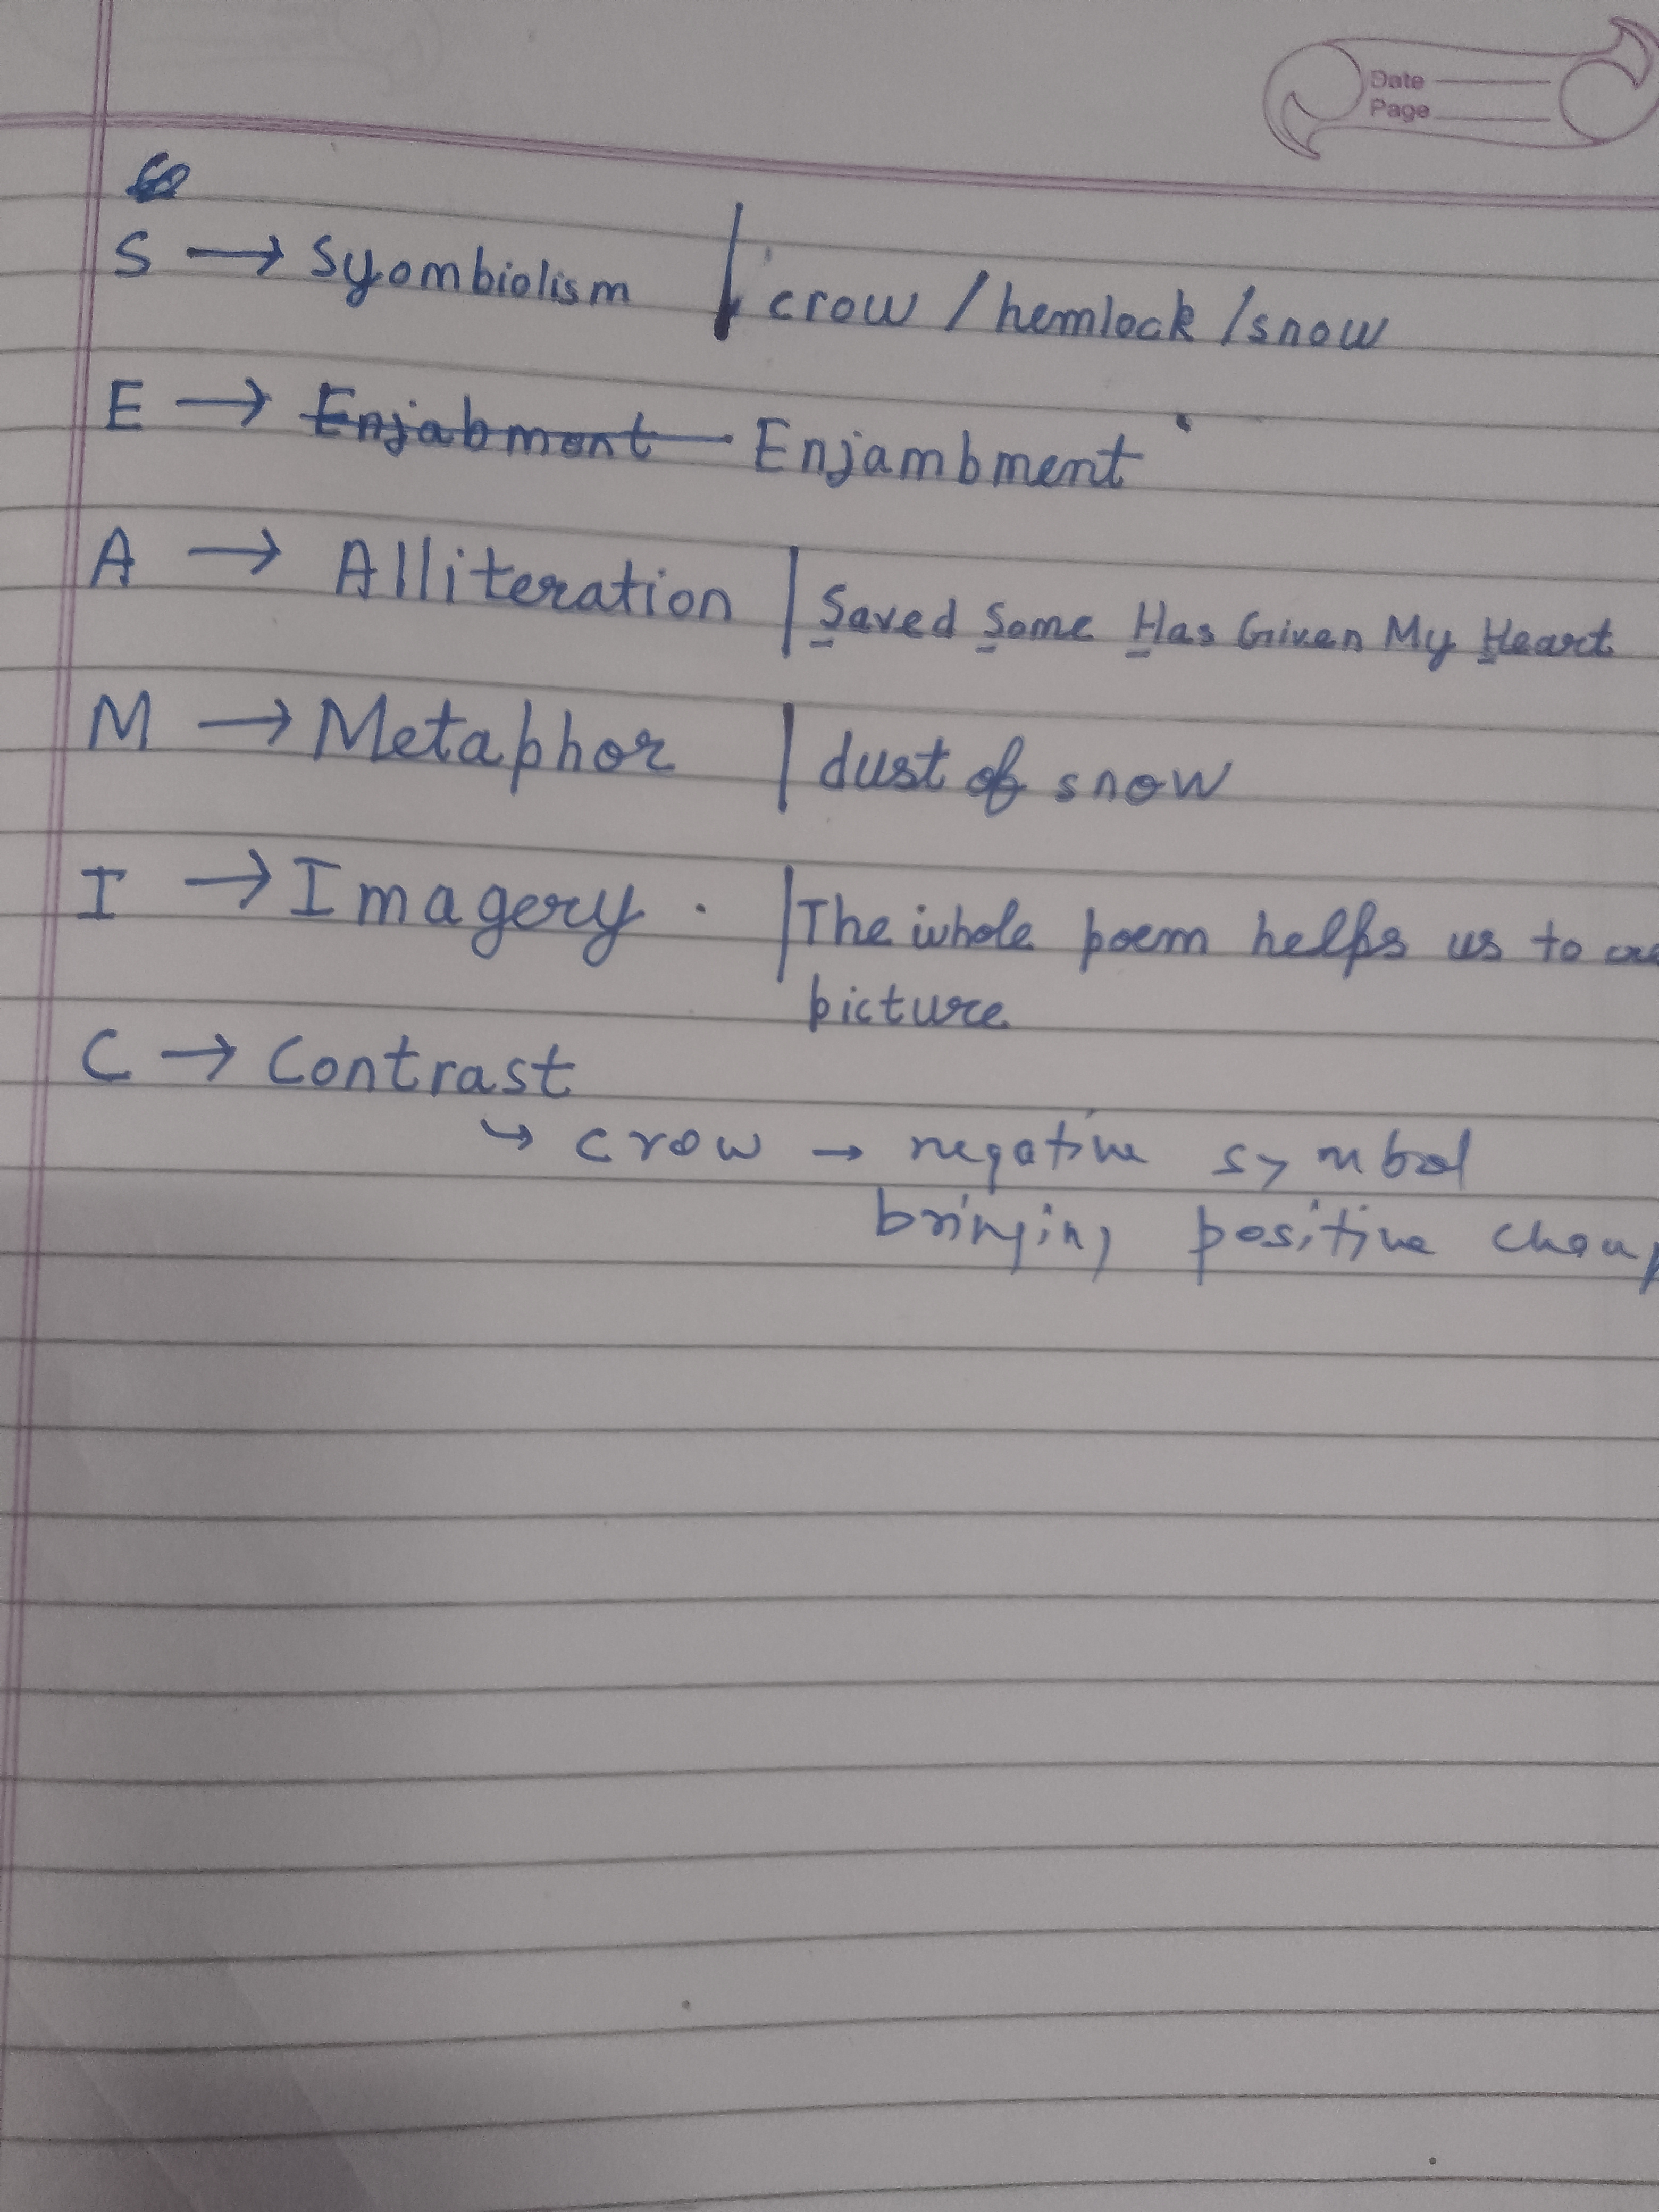 Date
Page
S → Syombiolism | crow / hemlock / snow
E → Enjabment Enjambment
A → Alliteration | Saved Some Has Given My Heart
M → Metaphor | dust of snow
I → Imagery . | The whole poem helps us to
picture
C → Contrast
↳ crow → negative symbol
bringing positive